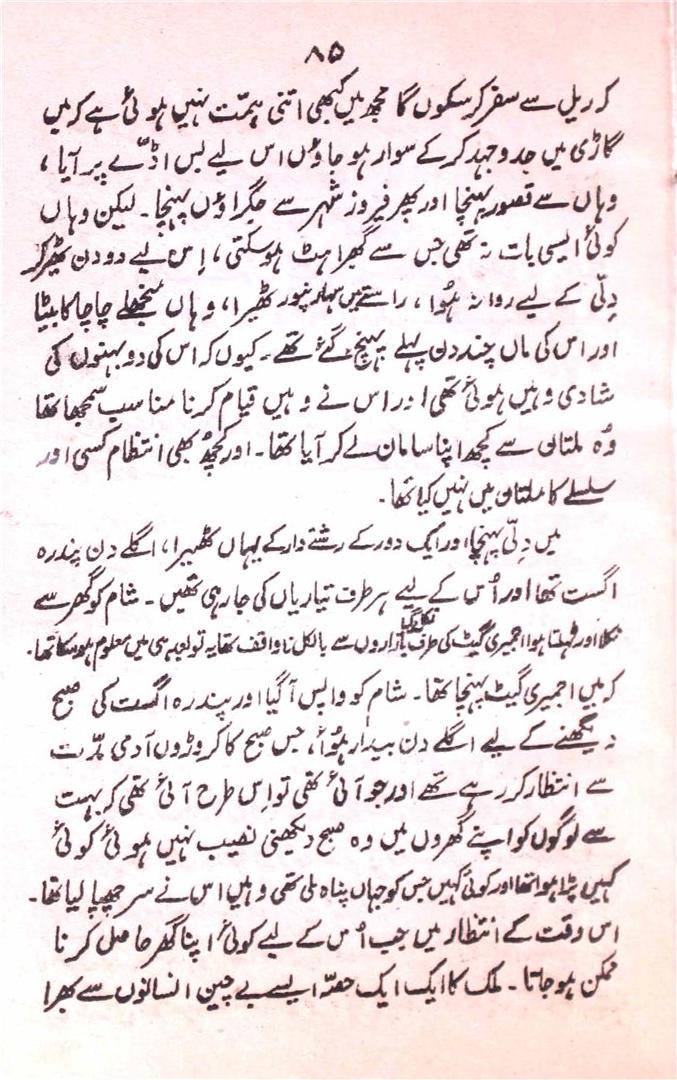 ۸۵
کر ریل سے سفر کر سکوں گا مجھ میں کبھی اتنی ہمّت نہیں ہوئی ہے کہ میں
گاڑی میں جدوجہد کر کے سوار ہو جاؤں اس لیے بس اڈّے پر آیا،
وہاں سے قصور پہنچا اور پھر فیروز شہر سے جگراؤں پہنچا۔ لیکن وہاں
کوئی ایسی بات نہ تھی جس سے گھبراہٹ ہو سکتی، اِس لیے دو دن ٹھہر کر
دِلّی کے لیے روانہ ہُوا، راستے میں سہارنپور ٹھیرا، وہاں منجھلے چاچا کا بیٹا
اور اس کی ماں چند دن پہلے پہنچ گئے تھے۔ کیوں کہ اس کی دو بہنوں کی
شادی وہیں ہوئی تھی اور اس نے وہیں قیام کرنا مناسب سمجھا تھا
وُہ ملتان سے کچھ اپنا سامان لے کر آیا تھا۔ اور کچھ بھی انتظام کسی اور
سلسلے کا ملتان میں نہیں کیا تھا۔
میں دِلّی پہنچا، اور ایک دور کے رشتے دار کے یہاں ٹھیرا، اگلے دن پندرہ
اگست تھا اور اُس کے لیے ہر طرف تیاریاں کی جا رہی تھیں۔ شام کو گھر سے
نکلا اور ٹہلتا ہوا اجمیری گیٹ کی طرف نکل گیا بازاروں سے بالکل ناواقف تھا یہ تو بعد ہی میں معلوم ہو سکا تھا۔
کہ میں اجمیری گیٹ پہنچا تھا۔ شام کو واپس آ گیا اور پندرہ اگست کی صبح
دیکھنے کے لیے اگلے دن بیدار ہُوا، جس صبح کا کروڑوں آدمی مدّت
سے انتظار کر رہے تھے اور جو آئی تھی تو اِس طرح آئی تھی کہ بہت
سے لوگوں کو اپنے گھروں میں وہ صبح دیکھنی نصیب نہیں ہوئی کوئی
کہیں پڑا ہوا تھا اور کوئی کہیں جس کو جہاں پناہ ملی تھی وہیں اس نے سر چھپا لیا تھا۔
اس وقت کے انتظار میں جب اُس کے لیے کوئی اپنا گھر حاصل کرنا
ممکن ہو جاتا۔ ملک کا ایک ایک حصّہ ایسے بے چین انسانوں سے بھرا